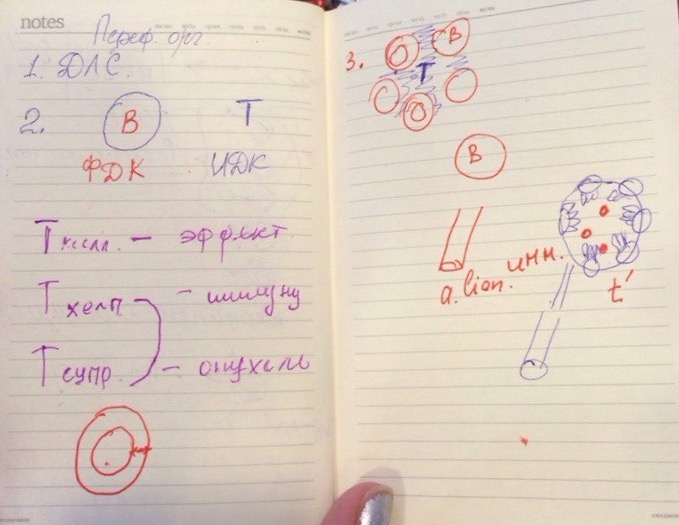 notes
Периф. орг.
1. ДЛС.
2. В Т
ФДК ИДК
Т килл. – эффект
Т хелп – иммуну
Т супр. – опухоль
3.
В
О
Т
О
В
a. lien.
инн.
t'